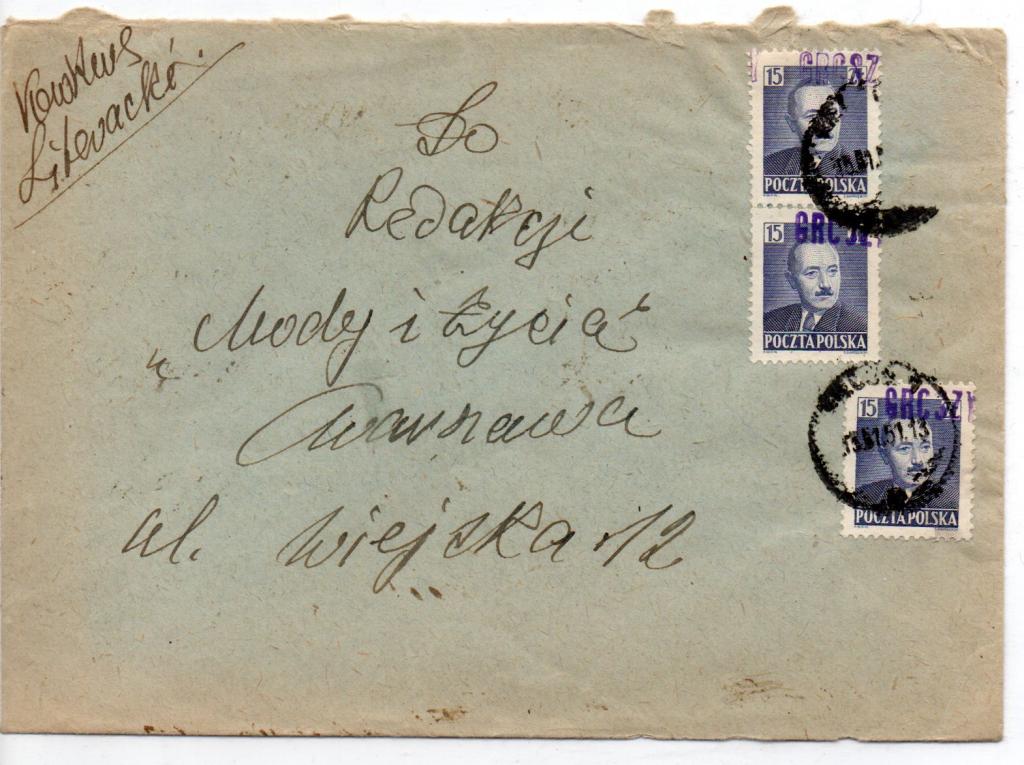 Konkurs
Literacki.
Do
Redakcji
„Mody i Życia"
Warszawa
al. Wiejska 12
15
GROSZY
POCZTA POLSKA
15
GROSZY
POCZTA POLSKA
15
GROSZY
POCZTA POLSKA